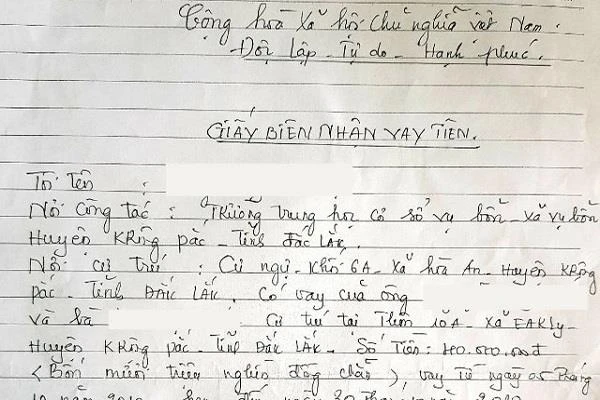 Cộng hoà Xã hội Chủ nghĩa việt Nam.
Độc lập - Tự do - Hạnh phúc.
GIẤY BIÊN NHẬN VAY TIỀN.
Tôi tên :
Nơi công tác : Trường trung học cơ sở vụ bổn - xã vụ bổn
Huyện KRông pắc - Tỉnh đắc Lắk.
Nơi cư trú : Cư ngụ - Khối 6A - xã hòa An - Huyện KRông
pắc - Tỉnh ĐẮK LẮK. Có vay của ông
và bà Cư trú tại Thôn 10A - xã EAKly -
Huyện KRông pắc - Tỉnh Đắk Lắk - Số Tiền: 40.000.000đ
(Bốn mươi triệu nghìn đồng chẵn), vay Từ ngày 05 Tháng